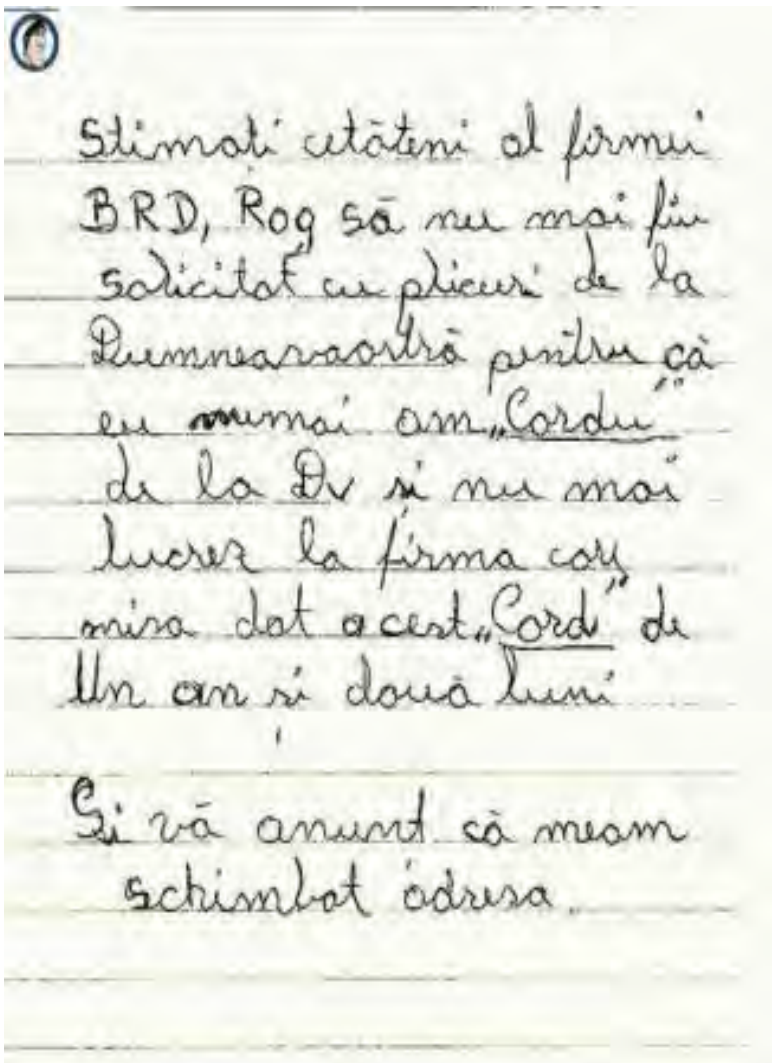 Stimati cetăteni al firmei
BRD, Rog să nu mai fiu
solicitat cu plicuri de la
Dumneavaostră pentru că
eu numai am „Cordu”
de la Dv si nu mai
lucrez la firma care
misa dat acest „Cord” de
Un an si două luni
Si vă anunt că meam
schimbat adresa.